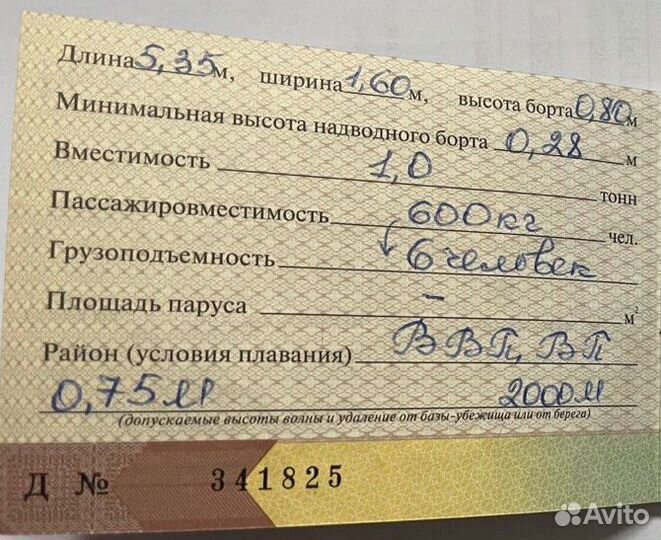 Длина 5,35 м, ширина 1,60 м, высота борта 0,80 м
Минимальная высота надводного борта 0,28 м
Вместимость 1,0 тонн
Пассажировместимость 600кг чел.
Грузоподъемность 6 человек
Площадь паруса - м²
Район (условия плавания) ВВП, ВП
0,75м 2000м
(допускаемые высоты волны и удаление от базы-убежища или от берега)
Д № 341825
Avito